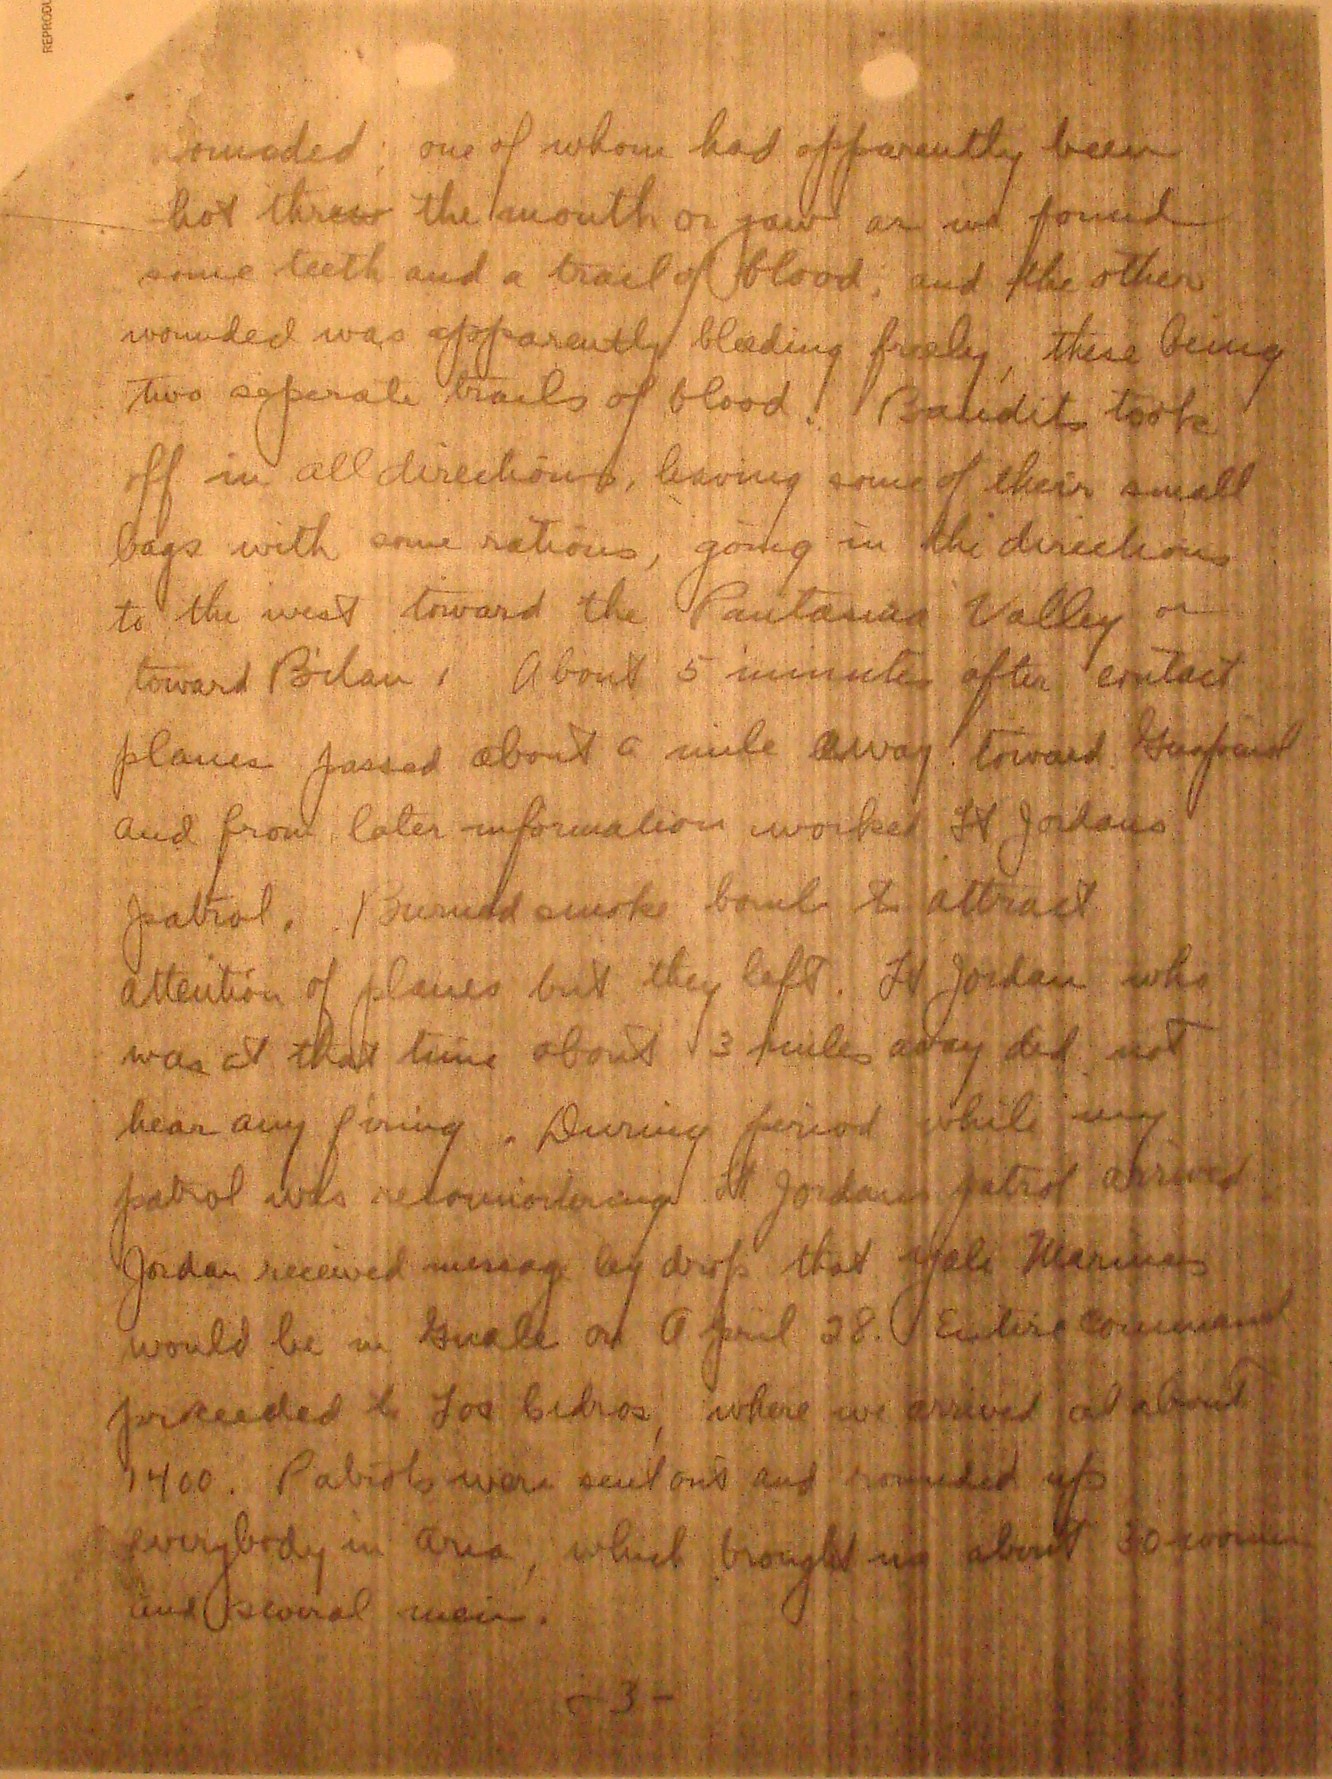 REPRODU
ounded; one of whom had apparently been
hot threw the mouth or jaw as we found
some teeth and a trail of blood, and the other
wounded was apparently bleeding freely, these being
two seperate trails of blood. Bandits took
off in all directions, leaving some of their small
bags with some rations, going in the directions
to the west toward the Pantasma Valley or
toward About 5 minutes after contact
planes passed about a mile away toward
and from later information worked Lt Jordans
patrol. Burned smoke bomb to attract
attention of planes but they left. Lt Jordan who
was at that time about 3 miles away did not
hear any firing. During period while my
patrol was Lt Jordans patrol arrived.
Jordan received message by drop that Yali Marines
would be in Guale on April 28. Entire command
proceeded to Los Cedros, where we arrived at about
1400. Patrols were sent out and rounded up
everybody in area, which brought us about 30 women
and several men.
- 3 -